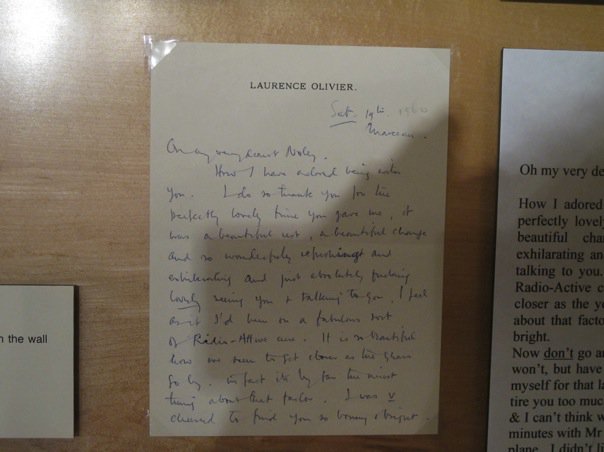 LAURENCE OLIVIER.
Sat. 19th. 1960
Oh my very dearest Noley.
How I have adored being with
you. I do so thank you for the
perfectly lovely time you gave me, it
was a beautiful rest, a beautiful change
and so wonderfully refreshing and
exhilarating and just absolutely fucking
lovely seeing you & talking to you. I feel
as if I'd been on a fabulous sort
of Radio-Active cure. It is so beautiful
how we seem to get closer as the years
go by. in fact its by far the nicest
thing about that factor. I was v
cheered to find you so bonny & bright.
n the wall
Oh my very de
How I adored
perfectly lovely
beautiful cha
exhilarating an
talking to you.
Radio-Active c
closer as the ye
about that facto
bright.
Now don't go an
won't, but have
myself for that la
tire you too muc
& I can't think w
minutes with Mr
plane. I didn't li